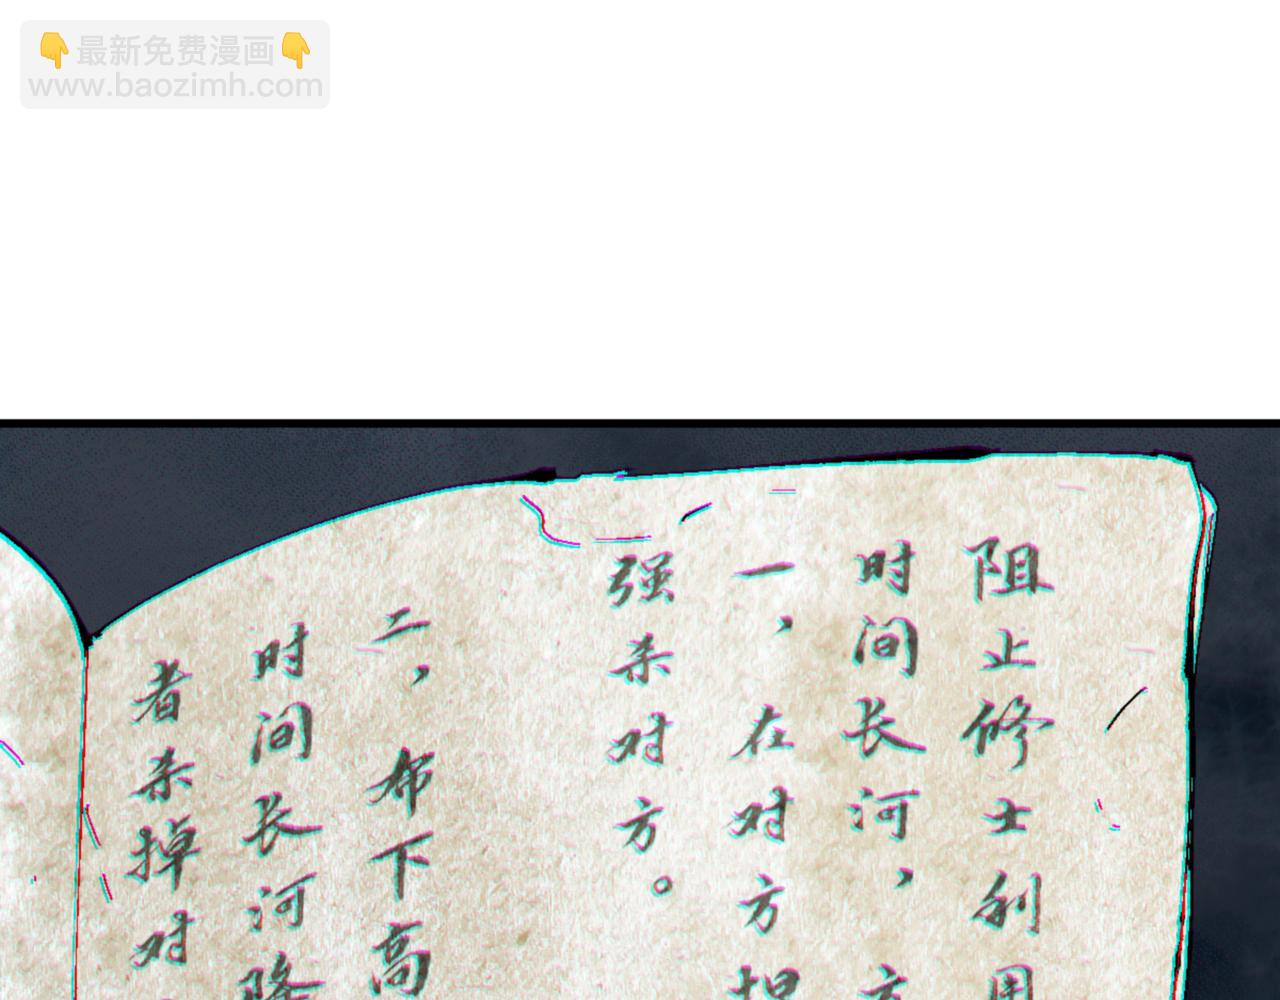 最新免费漫画
www.baozimh.com
阻止修士利用
时间长河，方
一，在对方
强杀对方。
二，布下高
时间长河降
者杀掉对